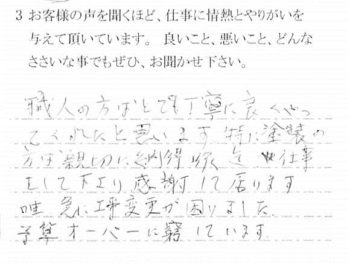 3 お客様の声を聞くほど、仕事に情熱とやりがいを
与えて頂いています。 良いこと、悪いこと、どんな
ささいな事でもぜひ、お聞かせ下さい。
職人の方はとても丁寧に良くやっ
てくれたと思います 特に塗装の
方は親切に納得 仕事
をして下より感謝して居ります
唯 急に工事変更が困りました
予算オーバーに窮しています